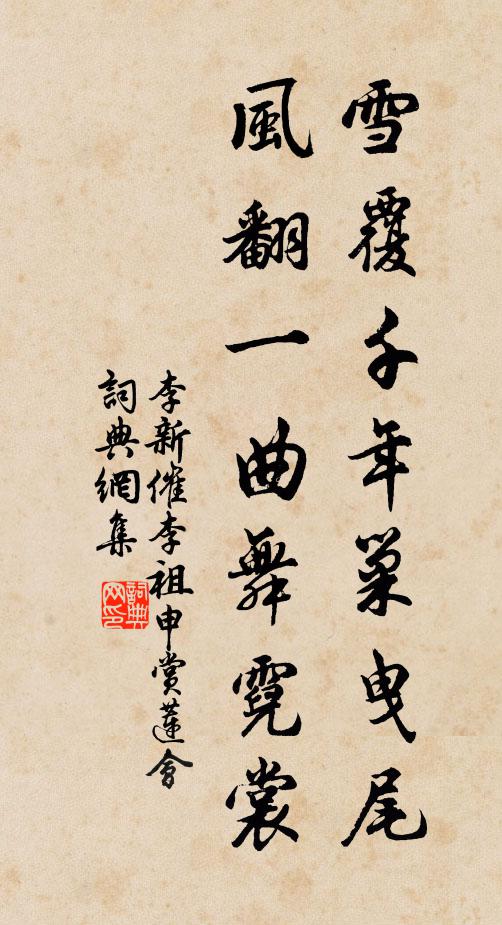 雪覆千年巢曳尾
風翻一曲舞霓裳
李新催李祖申賞蓮會
詞典網集
詞典网印